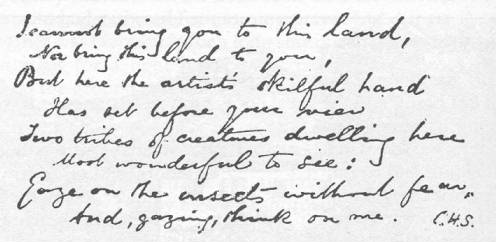 I cannot bring you to this land,
Nor bring this land to you,
But here the artist's skilful hand
Has set before your view
Two tribes of creatures dwelling here
Most wonderful to see:
Gaze on the insects without fear,
And, gazing, think on me. C.H.S.